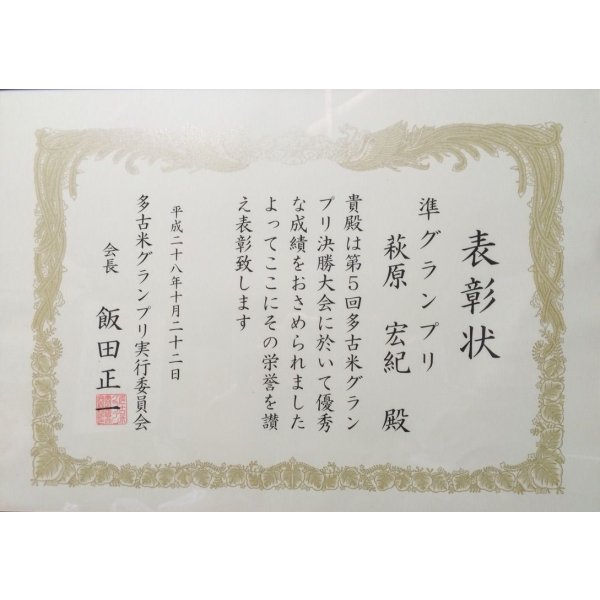 表彰状
準グランプリ
萩原 宏紀 殿
貴殿は第5回多古米グラン
プリ決勝大会に於いて優秀
な成績をおさめられました
よってここにその栄誉を讃
え表彰致します
平成二十八年十月二十二日
多古米グランプリ実行委員会
会長 飯田正一